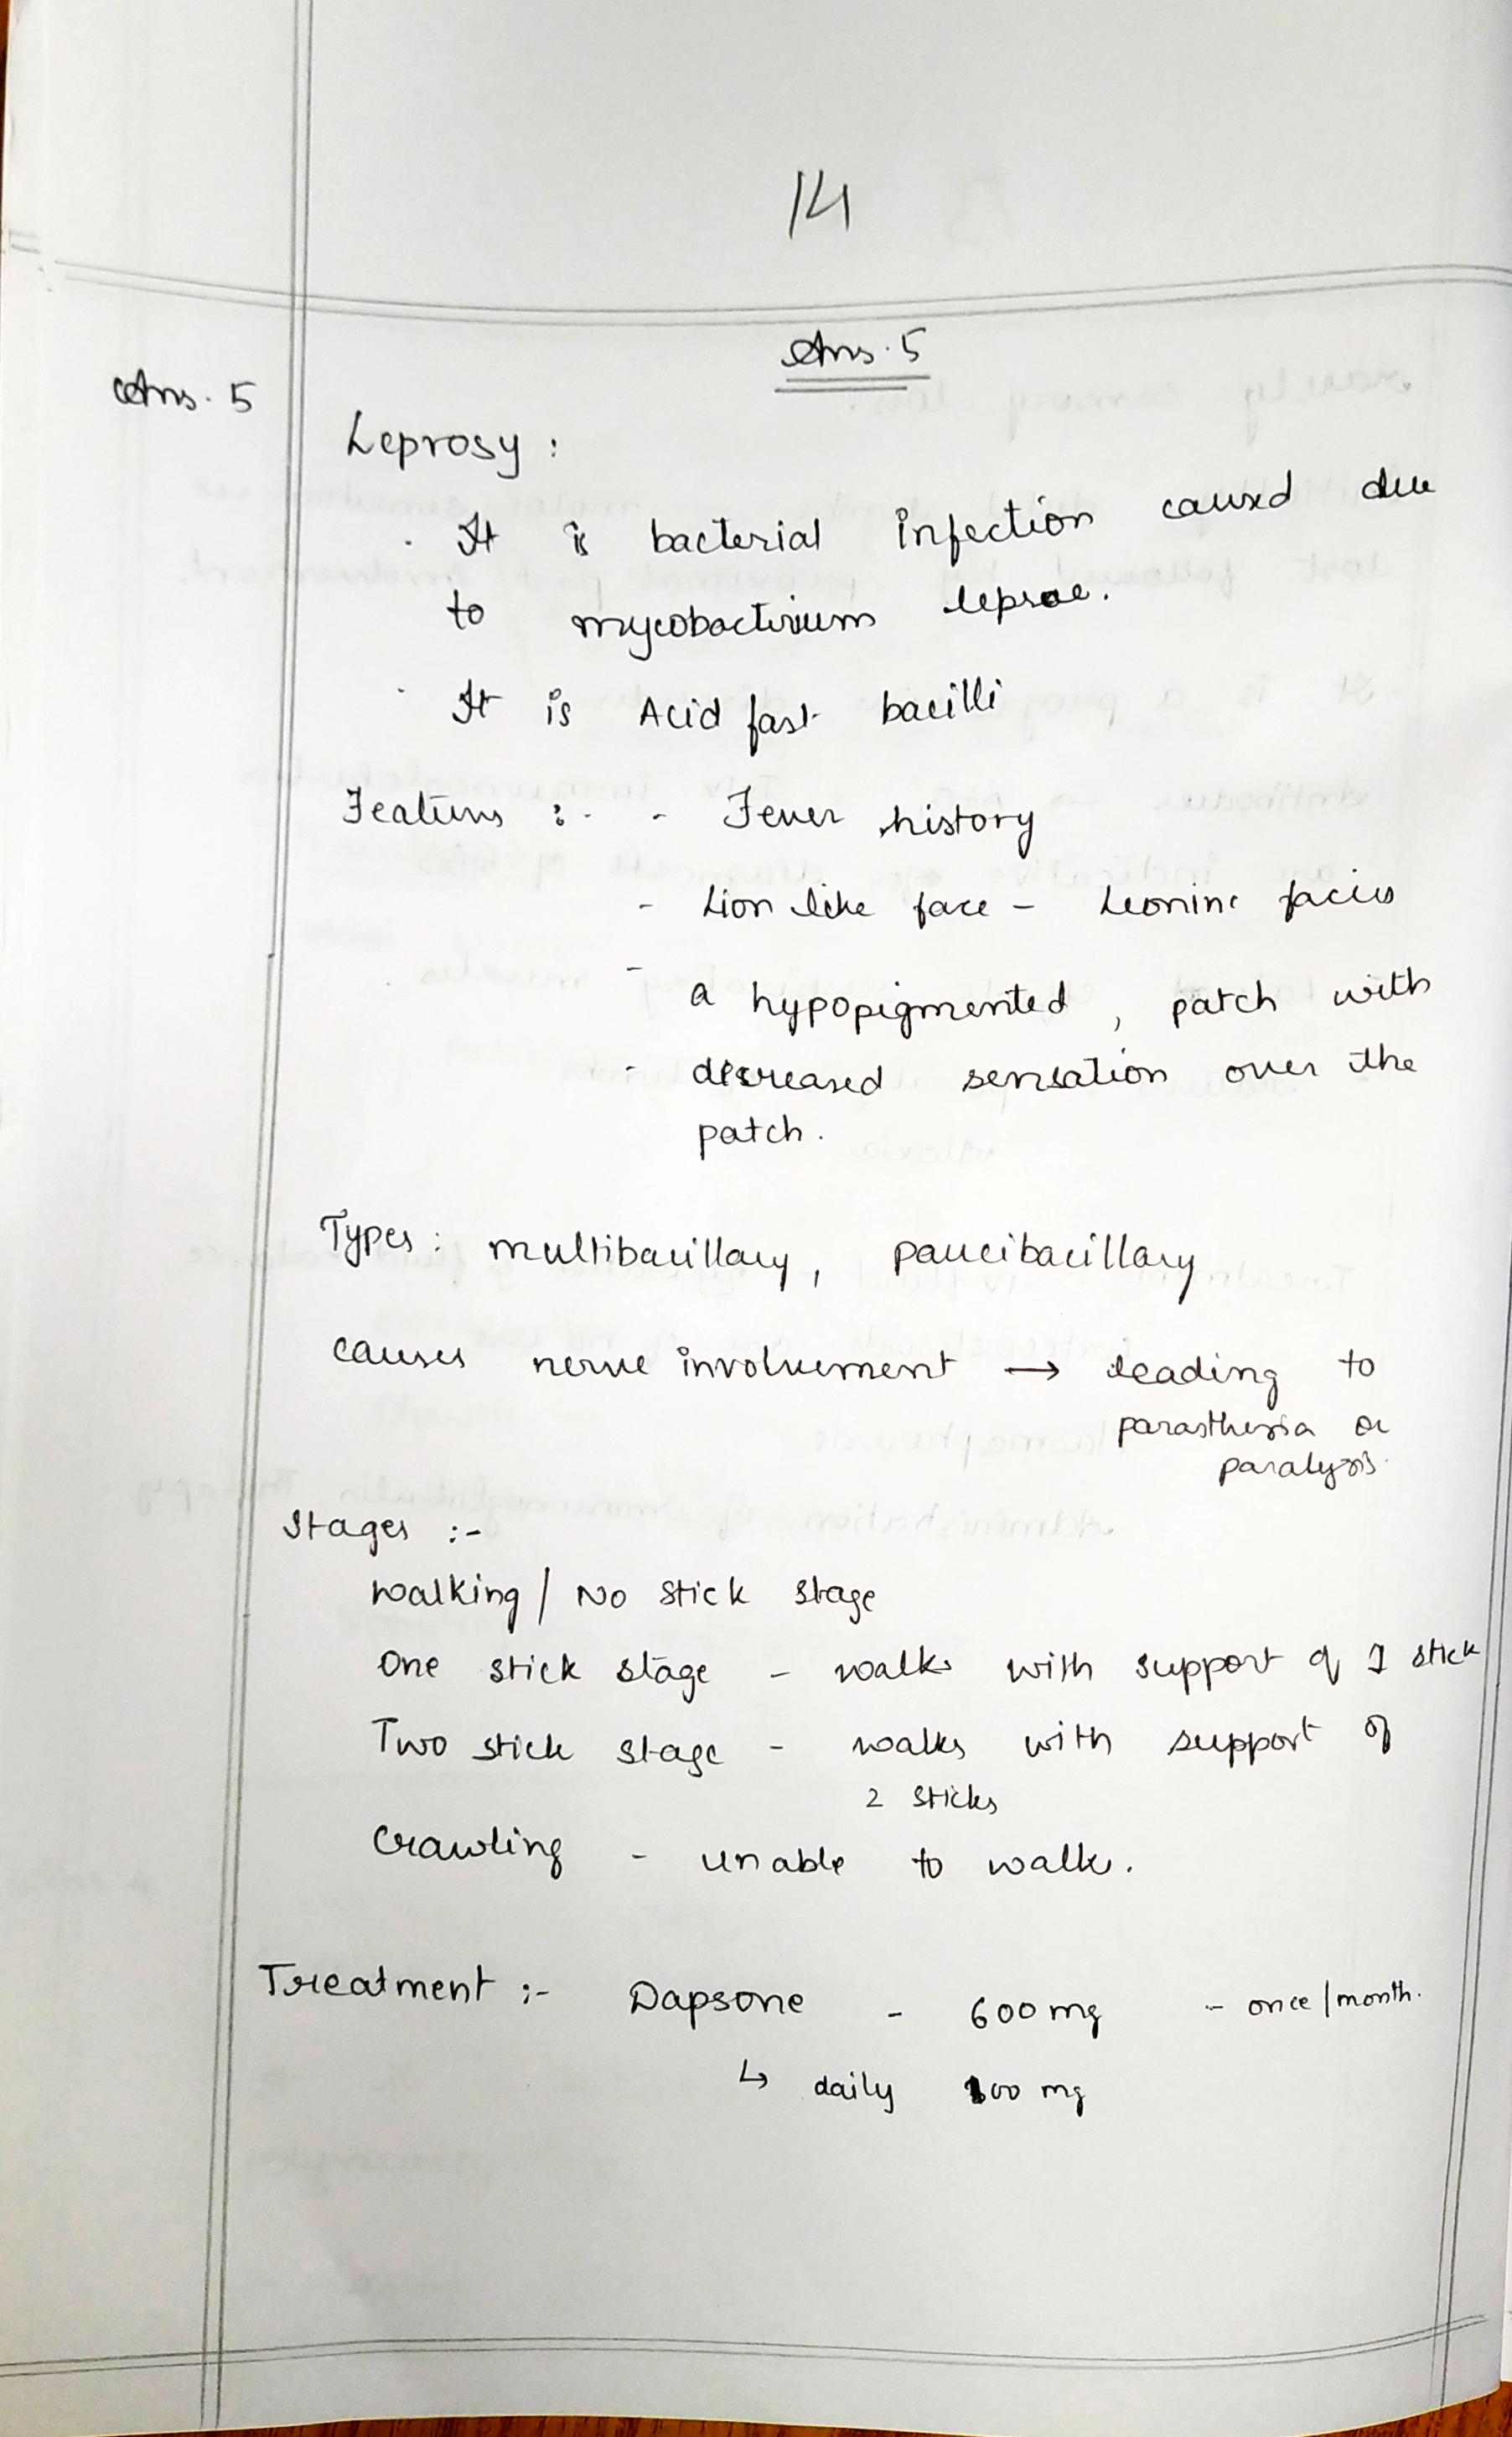 14
Ans. 5
Ans. 5
Leprosy :
. It is bacterial infection caused due
to mycobacterium leprae.
. It is Acid fast bacilli
Features :- - Fever history
- Lion like face - Leonine facies
- a hypopigmented, patch with
- decreased sensation over the
patch.
Types : multibacillary, paucibacillary
causes nerve involvement → leading to
parasthesia or
paralysis.
Stages :-
walking / No stick stage
One stick stage - walks with support of 1 stick
Two stick stage - walks with support of
2 sticks
Crawling - unable to walk.
Treatment :- Dapsone - 600 mg - once / month.
↳ daily 100 mg